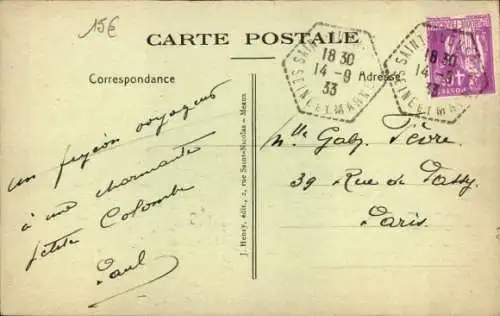 15€
CARTE POSTALE
Correspondance
Adresse
SAINT
18 30
14 -9
33
SEINE ET MARNE
SAINT
18 30
14 -9
33
SEINE ET MARNE
un pigeon voyageur
à une charmante
petite Colombe
Paul
J. Henry, édit., 2, rue Saint-Nicolas - Meaux
Mlle Gaby Fèvre
39 Rue de Passy
Paris